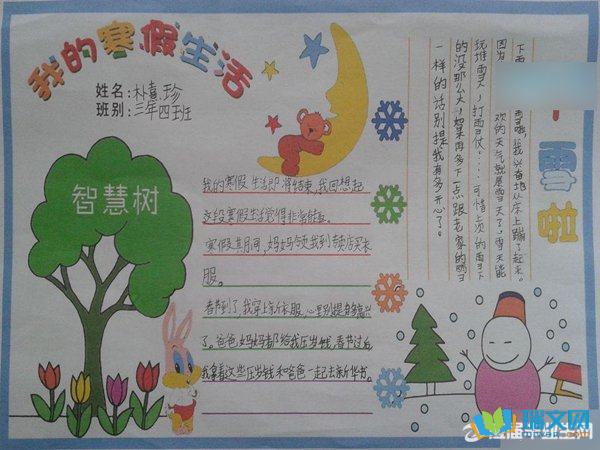 我的寒假生活
姓名:朴熹珍
班别:三年四班
智慧树
我的寒假生活即将结束,我回想起
这段寒假生活觉得非常
寒假其月间,妈妈领我到卖店买衣
服。
春节到了,我穿上新衣服,心里别提多高兴
了。爸爸妈妈都给我压岁钱,春节过后
我拿着这些压岁钱和爸爸一起去新华书。
雪啦
下雪哦,我兴奋地从床上蹦了起来。
因为
欢的天气就属雪天了,雪天能
玩堆雪人,打雪仗……可惜上次的雪下
的没那么大,如果再多下一点跟老家的
一样的话别提我有多开心了。
瑞文网